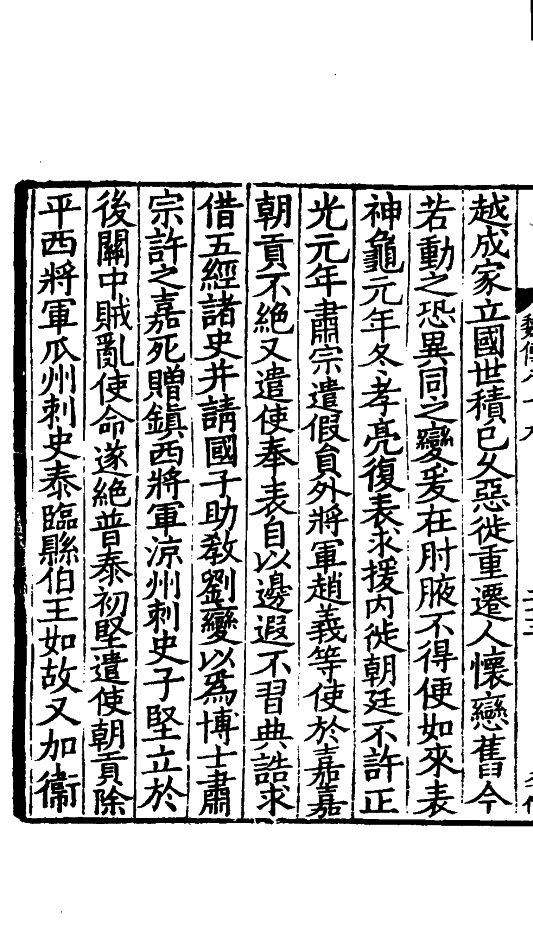 越成家立國世積已久惡徙重遷人懷戀舊今
若動之恐異同之變爰在肘腋不得便如來表
神龜元年冬孝亮復表求援內徙朝廷不許正
光元年肅宗遣假員外將軍趙義等使於嘉嘉
朝貢不絕又遣使奉表自以邊遐不習典誥求
借五經諸史并請國子助教劉變以爲博士肅
宗許之嘉死贈鎮西將軍涼州刺史子堅立於
後關中賊亂使命遂絕普泰初堅遣使朝貢除
平西將軍瓜州刺史泰臨縣伯王如故又加衞